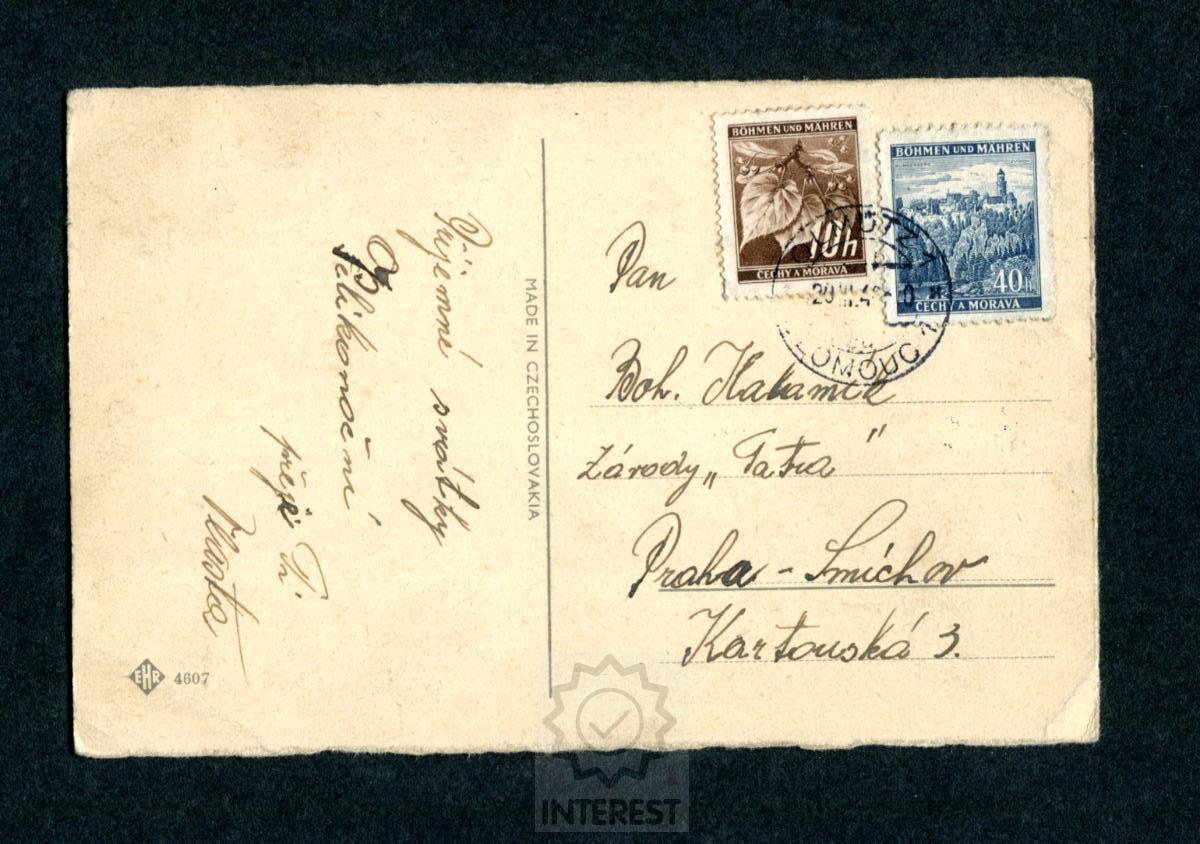 Příjemné svátky
Velikonoční
přeje Ti
Vlasta
EHR 4607
MADE IN CZECHOSLOVAKIA
BÖHMEN UND MÄHREN
10h
ČECHY A MORAVA
BÖHMEN UND MÄHREN
40h
ČECHY A MORAVA
OLOMOUC 2
Pan
Boh.
Závody „Tatra"
Praha - Smíchov
Kartouská 3.
INTEREST